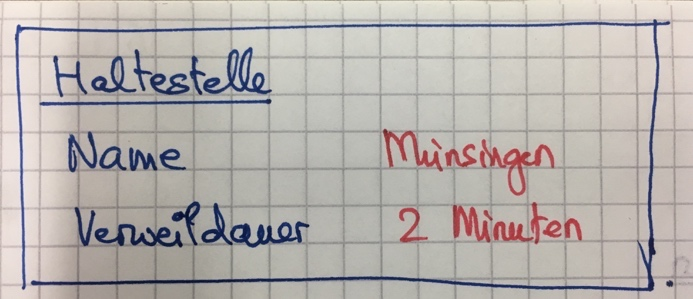 Haltestelle
Name Münsingen
Verweildauer 2 Minuten